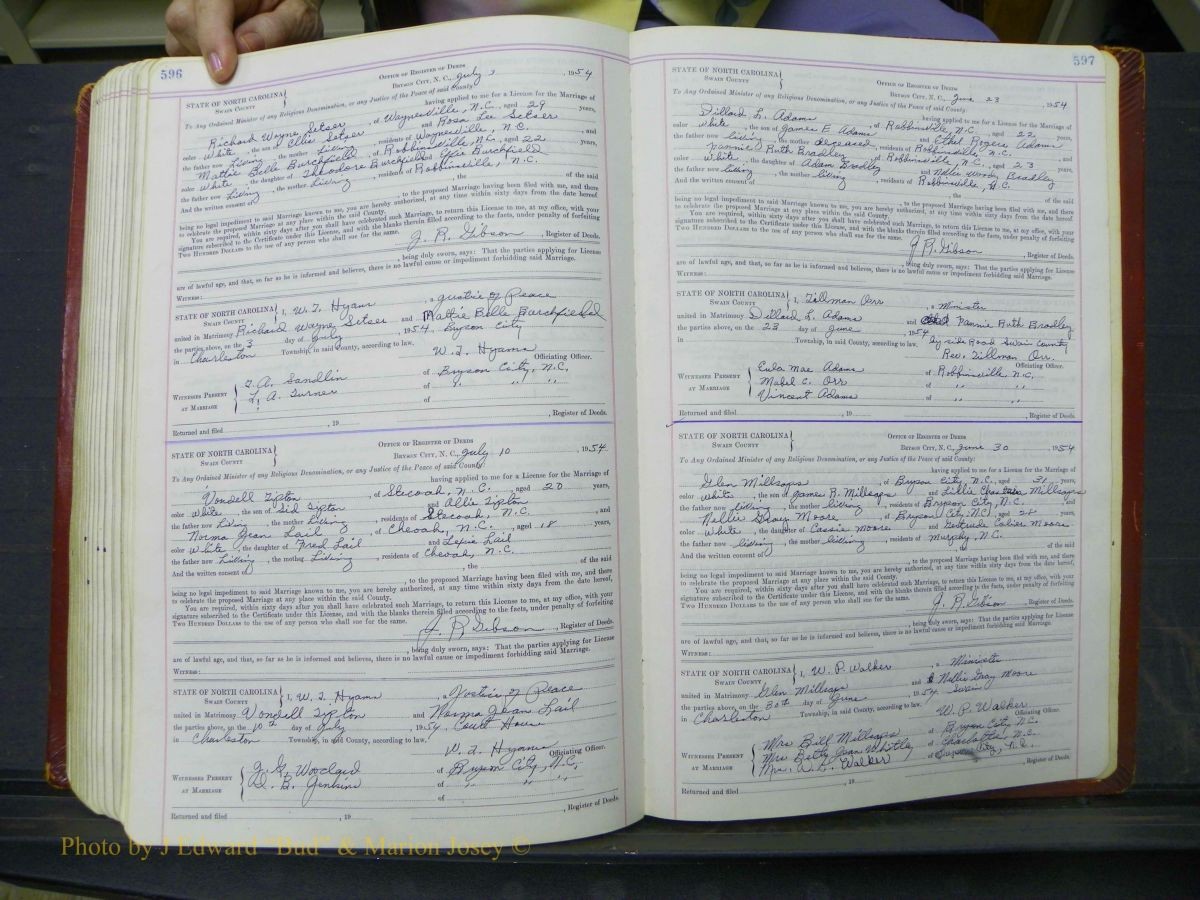 596
OFFICE OF REGISTER OF DEEDS
STATE OF NORTH CAROLINA
SWAIN COUNTY
BRYSON CITY, N. C., July 3, 1954
To Any Ordained Minister of any Religious Denomination, or any Justice of the Peace of said County:
having applied to me for a License for the Marriage of
Richard Wayne Setser, of Waynesville, N.C., aged 29 years,
color White, the son of Ellis Setser and Rosa Lee Setser
the father now Living, the mother Living, residents of Waynesville, N.C., and
Mattie Belle Burchfield, of Robbinsville, N.C., aged 22 years,
color White, the daughter of Theodore Burchfield and Offie Burchfield
the father now Living, the mother Living, residents of Robbinsville, N.C.
And the written consent of , the of the said
, to the proposed Marriage having been filed with me, and there
being no legal impediment to said Marriage known to me, you are hereby authorized, at any time within sixty days from the date hereof
to celebrate the proposed Marriage at any place within the said County.
You are required, within sixty days after you shall have celebrated such Marriage, to return this License to me, at my office, with your
signature subscribed to the Certificate under this License, and with the blanks therein filled according to the facts, under penalty of forfeiting
TWO HUNDRED DOLLARS to the use of any person who shall sue for the same.
J. R. Gibson, Register of Deeds.
, being duly sworn, says: That the parties applying for License
are of lawful age, and that, so far as he is informed and believes, there is no lawful cause or impediment forbidding said Marriage.
WITNESS:
STATE OF NORTH CAROLINA
SWAIN COUNTY
I, W. T. Hyams, a Justice of Peace
united in Matrimony Richard Wayne Setser and Mattie Belle Burchfield
the parties above, on the 3 day of July 1954. Bryson City
in Charleston Township, in said County, according to law.
W. T. Hyams
Officiating Officer.
WITNESSES PRESENT AT MARRIAGE
T. A. Sandlin of Bryson City, N.C.
L. A. Turner of " "
of
Returned and filed , 19 , Register of Deeds.
OFFICE OF REGISTER OF DEEDS
STATE OF NORTH CAROLINA
SWAIN COUNTY
BRYSON CITY, N. C., July 10, 1954
To Any Ordained Minister of any Religious Denomination, or any Justice of the Peace of said County:
having applied to me for a License for the Marriage of
Vondell Tipton, of Stecoah, N.C. aged 20 years,
color White, the son of Sid Tipton and Allie Tipton
the father now Living, the mother Living, residents of Stecoah, N.C., and
Norma Jean Lail, of Cheoah, N.C. aged 18 years,
color White, the daughter of Fred Lail and Lexie Lail
the father now Living, the mother Living, residents of Cheoah, N.C.
And the written consent of , the of the said
, to the proposed Marriage having been filed with me, and there
being no legal impediment to said Marriage known to me, you are hereby authorized, at any time within sixty days from the date hereof,
to celebrate the proposed Marriage at any place within the said County.
You are required, within sixty days after you shall have celebrated such Marriage, to return this License to me, at my office, with your
signature subscribed to the Certificate under this License, and with the blanks therein filled according to the facts, under penalty of forfeiting
TWO HUNDRED DOLLARS to the use of any person who shall sue for the same.
J. R. Gibson, Register of Deeds.
, being duly sworn, says: That the parties applying for License
are of lawful age, and that, so far as he is informed and believes, there is no lawful cause or impediment forbidding said Marriage.
WITNESS:
STATE OF NORTH CAROLINA
SWAIN COUNTY
I, W. T. Hyams, a Justice of Peace
united in Matrimony Vondell Tipton and Norma Jean Lail
the parties above, on the 10th day of July, 1954, Court House
in Charleston Township, in said County, according to law.
W. T. Hyams
Officiating Officer.
WITNESSES PRESENT AT MARRIAGE
of Bryson City, N.C.
D. B. Jenkins of " "
Returned and filed , 19 , Register of Deeds.
597
STATE OF NORTH CAROLINA
SWAIN COUNTY
OFFICE OF REGISTER OF DEEDS
BRYSON CITY, N. C., June 23 1954
To Any Ordained Minister of any Religious Denomination, or any Justice of the Peace of said County:
having applied to me for a License for the Marriage of
Dillard L. Adams, of Robbinsville, N.C., aged 22 years,
color White, the son of James E Adams and Ethel Rogers Adams
the father now living, the mother deceased, residents of Robbinsville, N.C., and
Nannie Ruth Bradley, of Robbinsville, N.C., aged 23 years,
color White, the daughter of Adam Bradley and Nellie Woody Bradley
the father now living, the mother living, residents of Robbinsville, N.C.
And the written consent of , the of the said
, to the proposed Marriage having been filed with me, and there
being no legal impediment to said Marriage known to me, you are hereby authorized, at any time within sixty days from the date hereof
to celebrate the proposed Marriage at any place within the said County.
You are required, within sixty days after you shall have celebrated such Marriage, to return this License to me, at my office, with your
signature subscribed to the Certificate under this License, and with the blanks therein filled according to the facts, under penalty of forfeiting
TWO HUNDRED DOLLARS to the use of any person who shall sue for the same.
J. R. Gibson, Register of Deeds.
, being duly sworn, says: That the parties applying for License
are of lawful age, and that, so far as he is informed and believes, there is no lawful cause or impediment forbidding said Marriage.
WITNESS:
STATE OF NORTH CAROLINA
SWAIN COUNTY
I, Tillman Orr, a Minister
united in Matrimony Dillard L. Adams and Nannie Ruth Bradley
the parties above, on the 23 day of June 1954
in Township, in said County, according to law. by side Road Swain County
Rev. Tillman Orr.
Officiating Officer.
WITNESSES PRESENT AT MARRIAGE
Eula Mae Adams of Robbinsville, N.C.
Mabel C. Orr of " "
Vincent Adams of " "
Returned and filed , 19 , Register of Deeds.
STATE OF NORTH CAROLINA
SWAIN COUNTY
OFFICE OF REGISTER OF DEEDS
BRYSON CITY, N. C., June 30 1954
To Any Ordained Minister of any Religious Denomination, or any Justice of the Peace of said County:
having applied to me for a License for the Marriage of
Glen Millsaps, of Bryson City, N.C., aged 31 years,
color White, the son of James R. Millsaps and Lillie Millsaps
the father now living, the mother living, residents of Bryson City, N.C., and
Nellie Gray Moore, of Bryson City, N.C., aged 28 years,
color White, the daughter of Cassie Moore and Gertrude Moore
the father now living, the mother living, residents of Murphy, N.C.
And the written consent of , the of the said
, to the proposed Marriage having been filed with me, and there
being no legal impediment to said Marriage known to me, you are hereby authorized, at any time within sixty days from the date hereof,
to celebrate the proposed Marriage at any place within the said County.
You are required, within sixty days after you shall have celebrated such Marriage, to return this License to me, at my office, with your
signature subscribed to the Certificate under this License, and with the blanks therein filled according to the facts, under penalty of forfeiting
TWO HUNDRED DOLLARS to the use of any person who shall sue for the same.
J. R. Gibson, Register of Deeds.
, being duly sworn, says: That the parties applying for License
are of lawful age, and that, so far as he is informed and believes, there is no lawful cause or impediment forbidding said Marriage.
WITNESS:
STATE OF NORTH CAROLINA
SWAIN COUNTY
I, W. P. Walker, a Minister
united in Matrimony Glen Millsaps and Nellie Gray Moore
the parties above, on the 30th day of June 1954. Swain
in Charleston Township, in said County, according to law.
W. P. Walker
Officiating Officer.
WITNESSES PRESENT AT MARRIAGE
Mrs Bill Millsaps of Bryson City, N.C.
Mrs Betty Jean Whitley of Charlotte, N.C.
Mrs. W. P. Walker of Bryson City, N.C.
Returned and filed , 19 , Register of Deeds.
Photo by J Edward "Bud" & Marion Josey ©